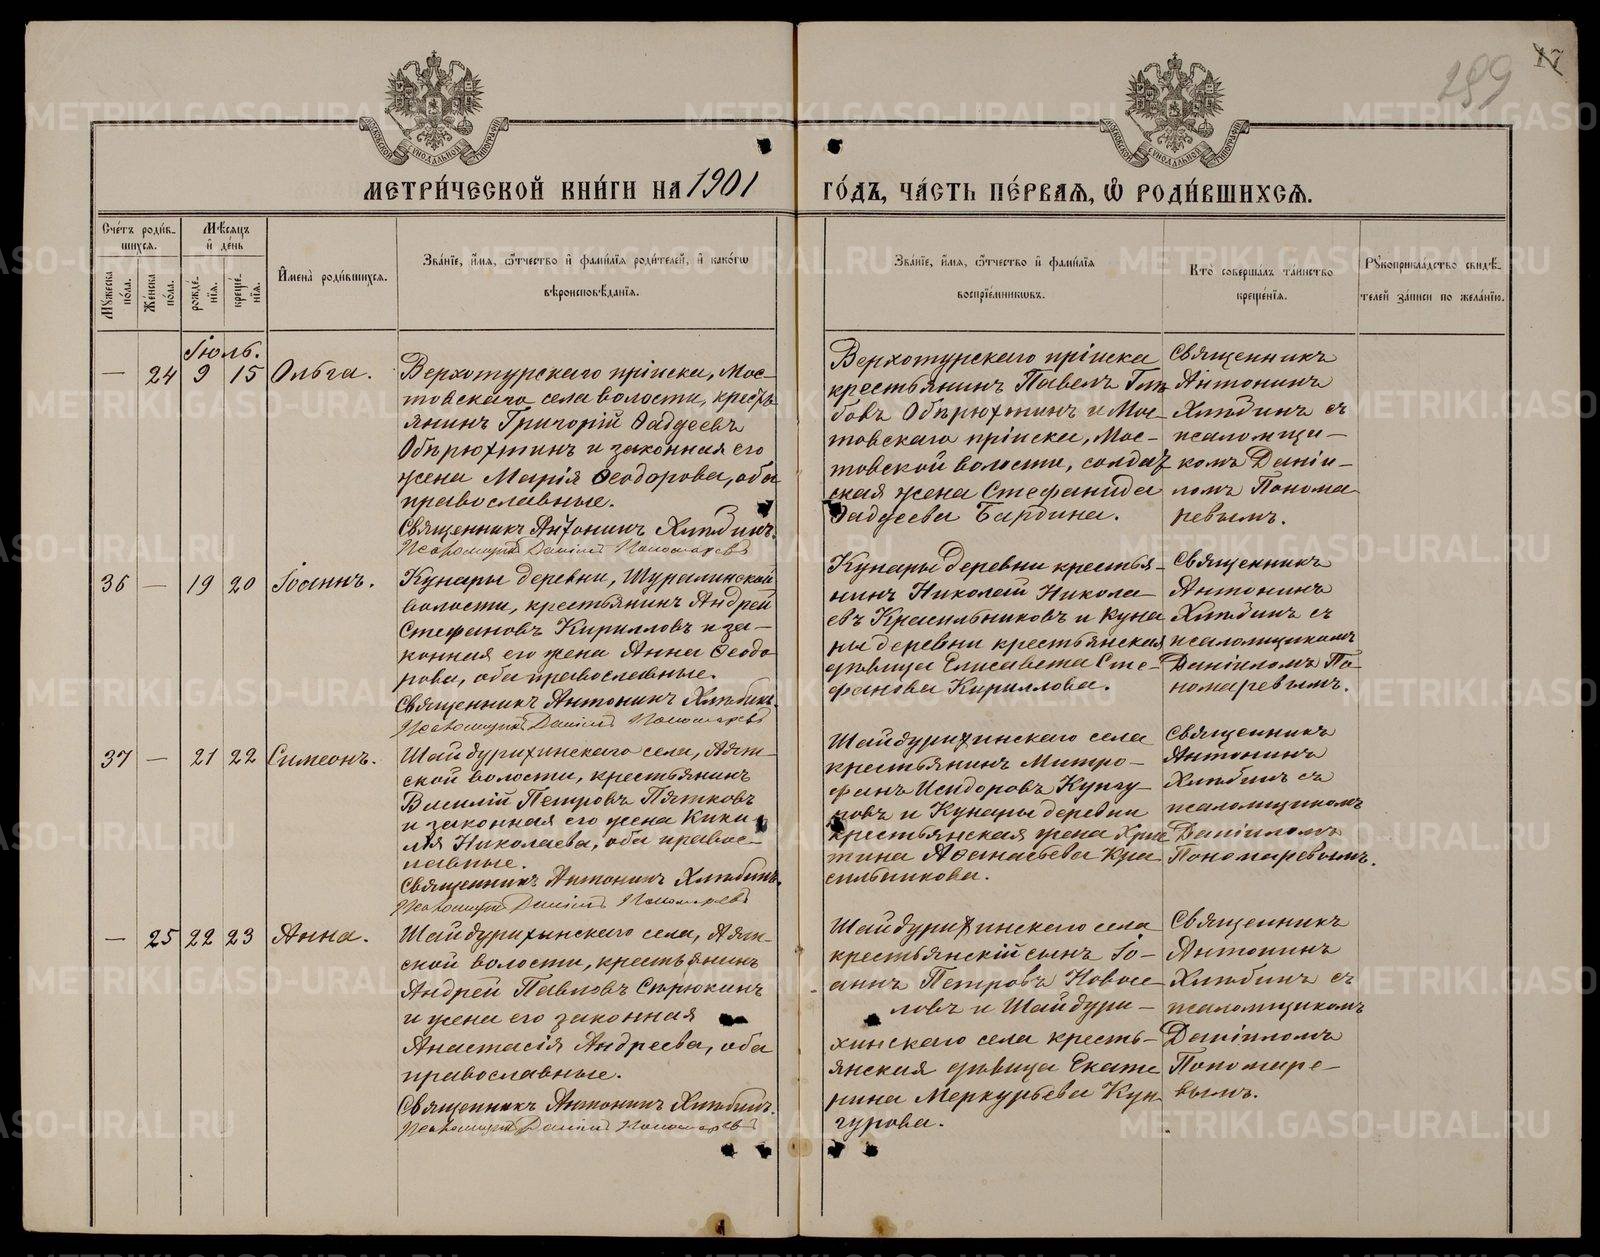 289
17
МЕТРИ́ЧЕСКОЙ КНИ́ГИ НА 1901
ГО́ДЪ, ЧА́СТЬ ПЕ́РВАЯ, Ѡ҆ РОДИ́ВШИХСЯ.
Сче́тъ роди́в-
шихся.
Мѣ́сяцъ
и҆ де́нь
Мꙋ́жеска
по́ла.
Же́нска
по́ла.
рожде-
нїѧ.
креще-
нїѧ.
И҆мена̀ роди́вшихся.
Зва́нїе, и҆́мя, ѻ҆́тчество и҆ фами́лїя роди́телей, и҆ како́гѡ
вѣроисповѣ́данїя.
Зва́нїе, и҆́мя, ѻ҆́тчество и҆ фами́лїя
воспрїе́мниковъ.
Кто̀ соверша́лъ та́инство
креще́нїя.
Рꙋкоприкла́дство свидѣ́-
телей за́писи по жела́нїю.
Іюль.
— 24 9 15 Ольга.
Верхотурскаго пріиска, Мос-
товскаго села волости, кресть-
янинъ Григорій Фадѣевъ
Обрюхтинъ и законная его
жена Марія Ѳеодорова, оба
православные.
Священникъ Антонинъ Хлѣбинъ.
Псаломщикъ Даніилъ Пономаревъ
Верхотурскаго пріиска
крестьянинъ Павелъ Глѣ-
бовъ Обрюхтинъ и Мос-
товскаго пріиска, Мос-
товской волости, солдат-
ская жена Стефанида
Фадѣева Бардина.
Священникъ
Антонинъ
Хлѣбинъ съ
псаломщи-
комъ Дані-
ломъ Понома
ревымъ.
36 — 19 20 Іоаннъ.
Кунары деревни, Шуралинской
волости, крестьянинъ Андрей
Стефановъ Кирилловъ и за-
конная его жена Анна Ѳеодо-
рова, оба православные.
Священникъ Антонинъ Хлѣбинъ.
Псаломщикъ Даніилъ Пономаревъ
Кунары деревни крестья-
нинъ Николай Никола-
евъ Красильниковъ и Куна
ры деревни крестьянская
дѣвица Елисавета Сте-
фанова Кириллова.
Священникъ
Антонинъ
Хлѣбинъ съ
псаломщикомъ
Даніиломъ По-
номаревымъ.
37 — 21 22 Симеонъ.
Шайдурихинскаго села, Аят-
ской волости, крестьянинъ
Василій Петровъ Пятковъ
и законная его жена Кики-
лія Николаева, оба правос-
лавные.
Священникъ Антонинъ Хлѣбинъ.
Псаломщикъ Даніилъ Пономаревъ
Шайдурихинскаго села
крестьянинъ Митро-
фанъ Исидоровъ Кунгу-
ровъ и Кунары деревни
крестьянская жена Хрис
тина Аѳанасьева Кра-
сильникова.
Священникъ
Антонинъ
Хлѣбинъ съ
псаломщикомъ
Даніиломъ
Пономаревымъ.
— 25 22 23 Анна.
Шайдурихинскаго села, Аят-
ской волости, крестьянинъ
Андрей Павловъ Сѣрюкинъ
и жена его законная
Анастасія Андреева, оба
православные.
Священникъ Антонинъ Хлѣбинъ.
Псаломщикъ Даніилъ Пономаревъ
Шайдурихинскаго села
крестьянскій сынъ Іо-
аннъ Петровъ Новосе-
ловъ и Шайдури-
хинскаго села кресть-
янская дѣвица Екате
рина Меркурьева Кун-
гурова.
Священникъ
Антонинъ
Хлѣбинъ съ
псаломщикомъ
Даніиломъ
Пономаре-
вымъ.